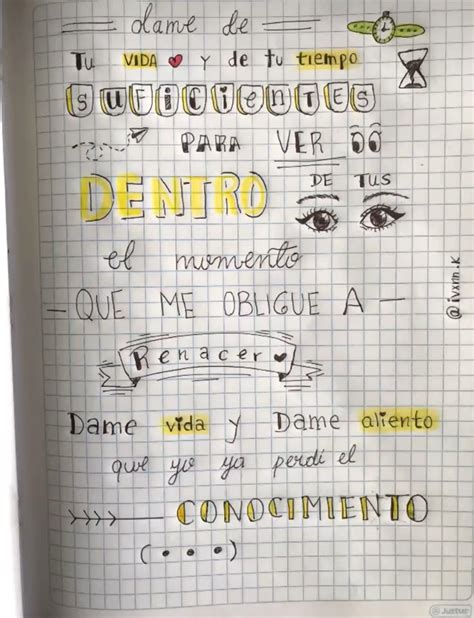 dame de
Tu VIDA y de tu tiempo
SUFICIENTES
PARA VER
DENTRO DE TUS
el momento
— QUE ME OBLIGUE A —
Renacer
Dame vida y Dame aliento
que yo ya perdi el
CONOCIMIENTO
(• • •)
@ivxnn.k